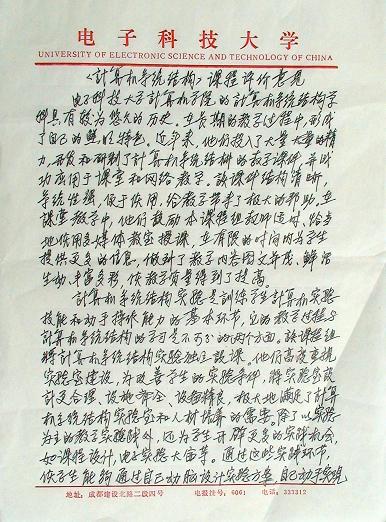 电子科技大学
UNIVERSITY OF ELECTRONIC SCIENCE AND TECHNOLOGY OF CHINA
《计算机系统结构》课程评价意见
电子科技大学计算机学院的计算机系统结构学
科具有较为悠久的历史。在长期的教学过程中,形成
了自己的鲜明特色。近年来,他们投入了大量大量的精
力,开发和研制了计算机系统结构的教学课件,并成
功应用于课堂和网络教学。该课件结构清晰,
系统性强,便于使用,给教学带来了极大的帮助。在
课堂教学中,他们鼓励本课程组教师适时、恰当
地使用多媒体教室授课,在有限的时间内为学生
提供更多的信息,做到了教学内容图文并茂、鲜活
生动、丰富多彩,使教学质量得到了提高。
计算机系统结构实验是训练学生计算机实验
技能和动手操作能力的基本环节,它的教学过程与
计算机系统结构的学习是不可分割的两个方面。该课程组
将计算机系统结构实验独立设课。他们高度重视
实验室建设,为改善学生的实验条件,将实验室设
计更合理、设施齐全、设备精良,极大地满足了计算
机系统结构实验室和人材培养的需要。除了以实验
为主的教学实践外,还为学生开辟更多的实践机会,
如课程设计,电子实验大奋等。通过这些实践环节,
使学生能够通过自己动脑设计实验方案,自己动手实现
地址:成都建设北路二段四号 电报挂号:6061 电话:333312